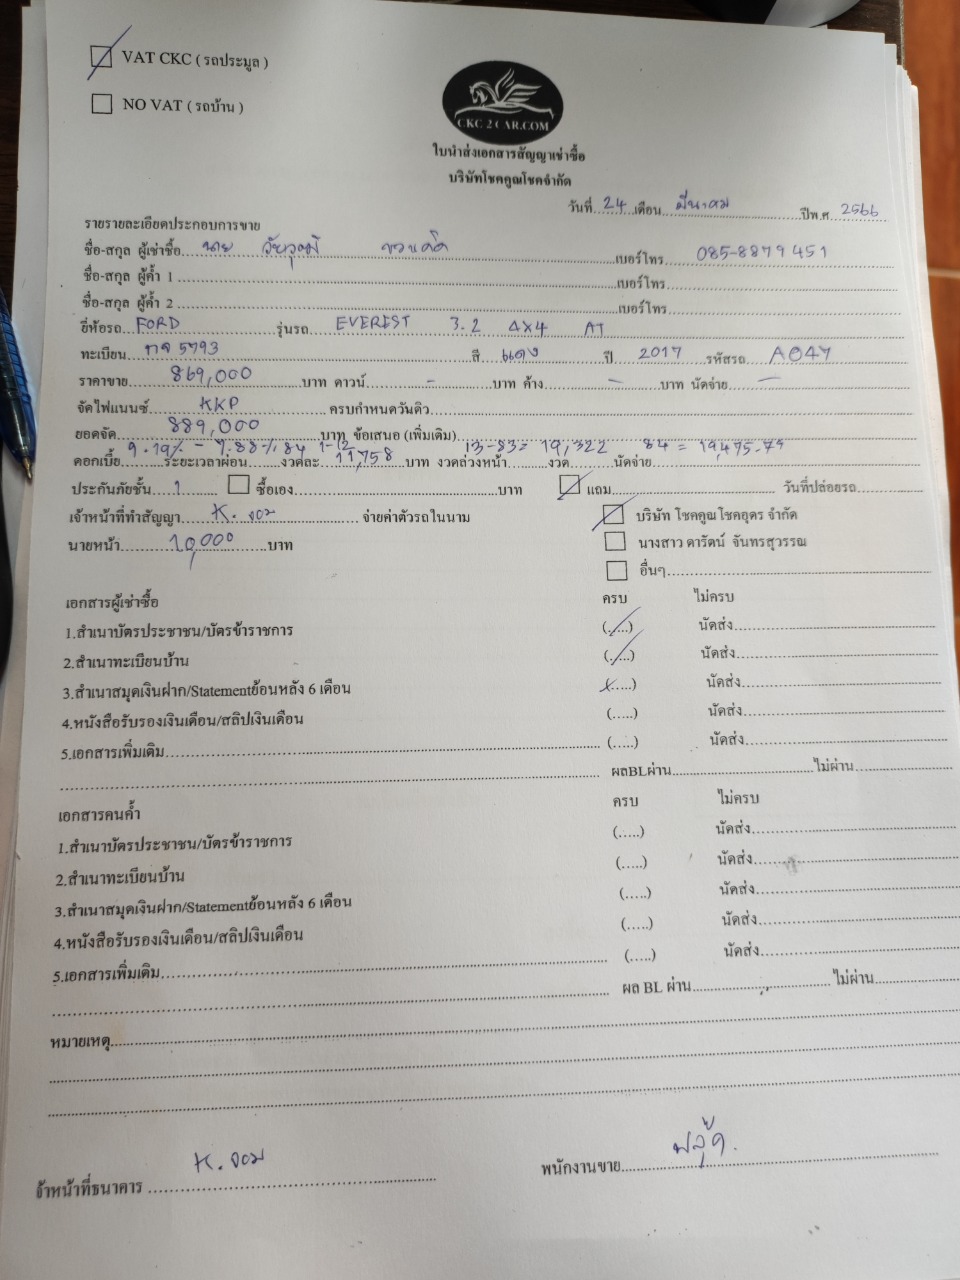 VAT CKC ( รถประมูล )
NO VAT ( รถบ้าน )
CKC 2 CAR.COM
ใบนำส่งเอกสารสัญญาเช่าซื้อ
บริษัทโชคคูณโชคจำกัด
วันที่ 24 เดือน มีนาคม ปีพ.ศ 2566
รายรายละเอียดประกอบการขาย
ชื่อ-สกุล ผู้เช่าซื้อ นาย เบอร์โทร 085-8879451
ชื่อ-สกุล ผู้ค้ำ 1 เบอร์โทร
ชื่อ-สกุล ผู้ค้ำ 2 เบอร์โทร
ยี่ห้อรถ FORD รุ่นรถ EVEREST 3.2 4x4 AT
ทะเบียน 5793 สี แดง ปี 2017 รหัสรถ A047
ราคาขาย 869,000 บาท ดาวน์ - บาท ค้าง - บาท นัดจ่าย -
จัดไฟแนนซ์ KKP ครบกำหนดวันดิว
ยอดจัด 889,000 บาท ข้อเสนอ (เพิ่มเติม)
9.19% - 7.88% 84 1-12 13-83 = 19,322 84 = 19,475.79
ดอกเบี้ย ระยะเวลาผ่อน งวดละ 11,758 บาท งวดล่วงหน้า งวด นัดจ่าย
ประกันภัยชั้น 1 ซื้อเอง บาท แถม วันที่ปล่อยรถ
เจ้าหน้าที่ทำสัญญา K. จอม จ่ายค่าตัวรถในนาม บริษัท โชคคูณโชคอุดร จำกัด
นายหน้า 10,000 บาท นางสาว ดารัตน์ จันทรสุวรรณ
อื่นๆ
เอกสารผู้เช่าซื้อ ครบ ไม่ครบ
1.สำเนาบัตรประชาชน/บัตรข้าราชการ (.....) นัดส่ง
2.สำเนาทะเบียนบ้าน (.....) นัดส่ง
3.สำเนาสมุดเงินฝาก/Statementย้อนหลัง 6 เดือน (.....) นัดส่ง
4.หนังสือรับรองเงินเดือน/สลิปเงินเดือน (.....) นัดส่ง
5.เอกสารเพิ่มเติม (.....) นัดส่ง
ผลBLผ่าน ไม่ผ่าน
เอกสารคนค้ำ ครบ ไม่ครบ
1.สำเนาบัตรประชาชน/บัตรข้าราชการ (.....) นัดส่ง
2.สำเนาทะเบียนบ้าน (.....) นัดส่ง
3.สำเนาสมุดเงินฝาก/Statementย้อนหลัง 6 เดือน (.....) นัดส่ง
4.หนังสือรับรองเงินเดือน/สลิปเงินเดือน (.....) นัดส่ง
5.เอกสารเพิ่มเติม (.....) นัดส่ง
ผล BL ผ่าน ไม่ผ่าน
หมายเหตุ
จ้าหน้าที่ธนาคาร K. จอม พนักงานขาย